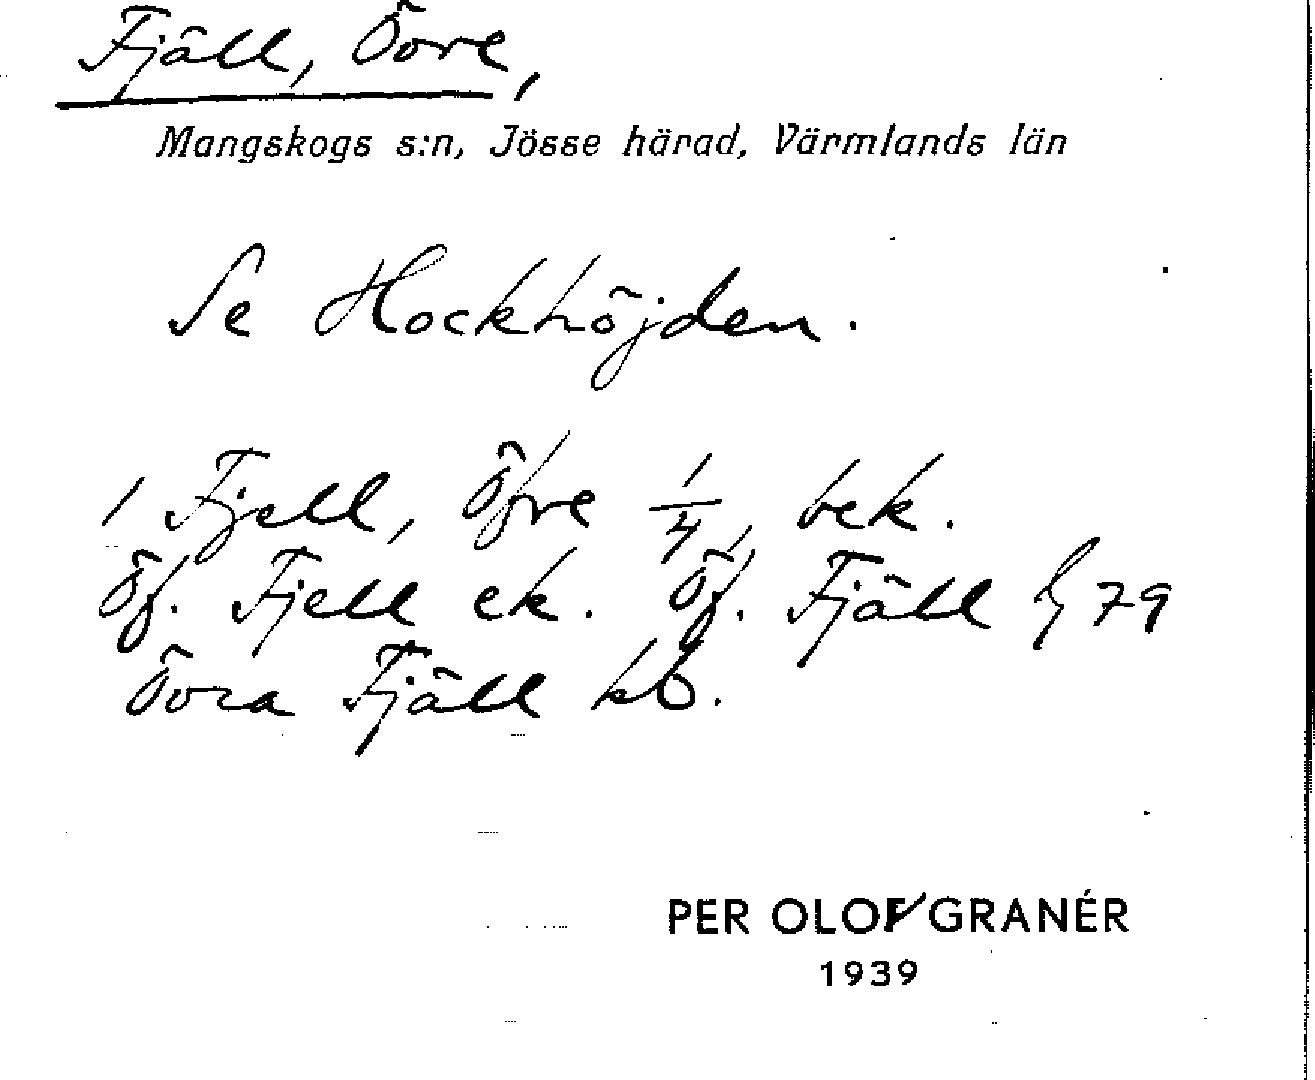 Fjäll, Övre,
Mangskogs s:n, Jösse härad, Värmlands län
Se Hockhöjden.
1 Fjell, Öfre 1/4, bek.
Öf. Fjell ek. Öf. Fjäll 79
Övra Fjäll kb.
PER OLOF GRANÉR
1939